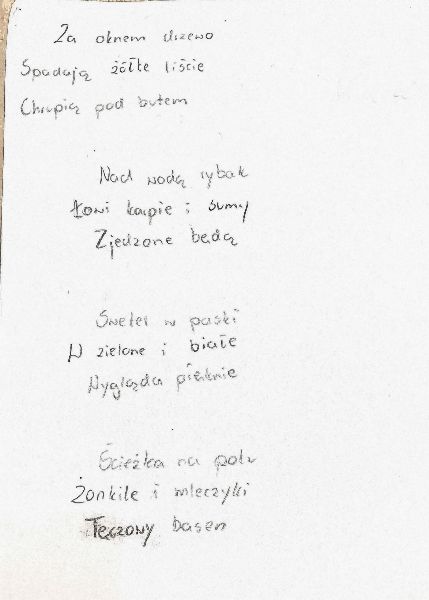 Za oknem drzewo
Spadają żółte liście
Chrupią pod butem
Nad wodą rybak
Łowi karpie i sumy
Zjedzone będą
Sweter w paski
W zielone i białe
Wygląda pięknie
Ścieżka na polu
Żonkile i mleczyki
Tęczowy basen